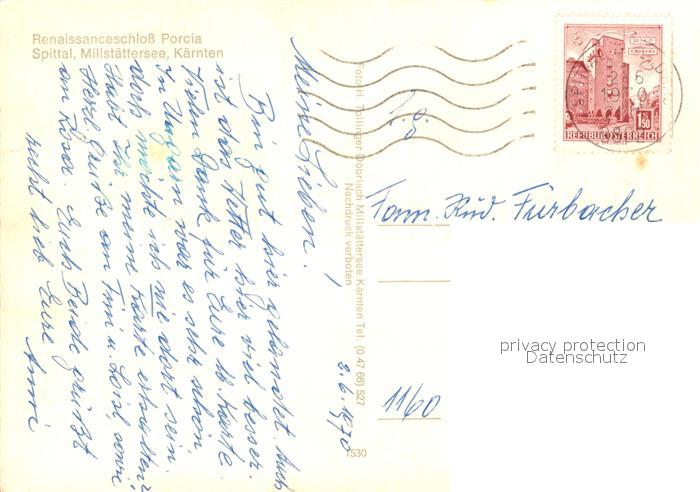 Renaissanceschloß Porcia
Spittal, Millstättersee, Kärnten
Meine Lieben!
Bin gut hier gelandet. Auch
ist das Wetter hier viel besser.
Vielen Dank für Eure lb. Karte.
In Ungarn war es sehr schön
doch möchte ich nie dort sein.
Habt Ihr meine Karte erhalten?
Herzl. Grüße an Tini u. Loisl, sowie
an Rosa. Euch Beide grüßt
recht lieb Eure Anni
2.6.1970
Foto H. Dobriach Millstättersee Kärnten Tel. (0 47 66) 527
Nachdruck verboten
1530
Fam. Rud. Fürbacher
11/60
1.50
REPUBLIK ÖSTERREICH
privacy protection
Datenschutz